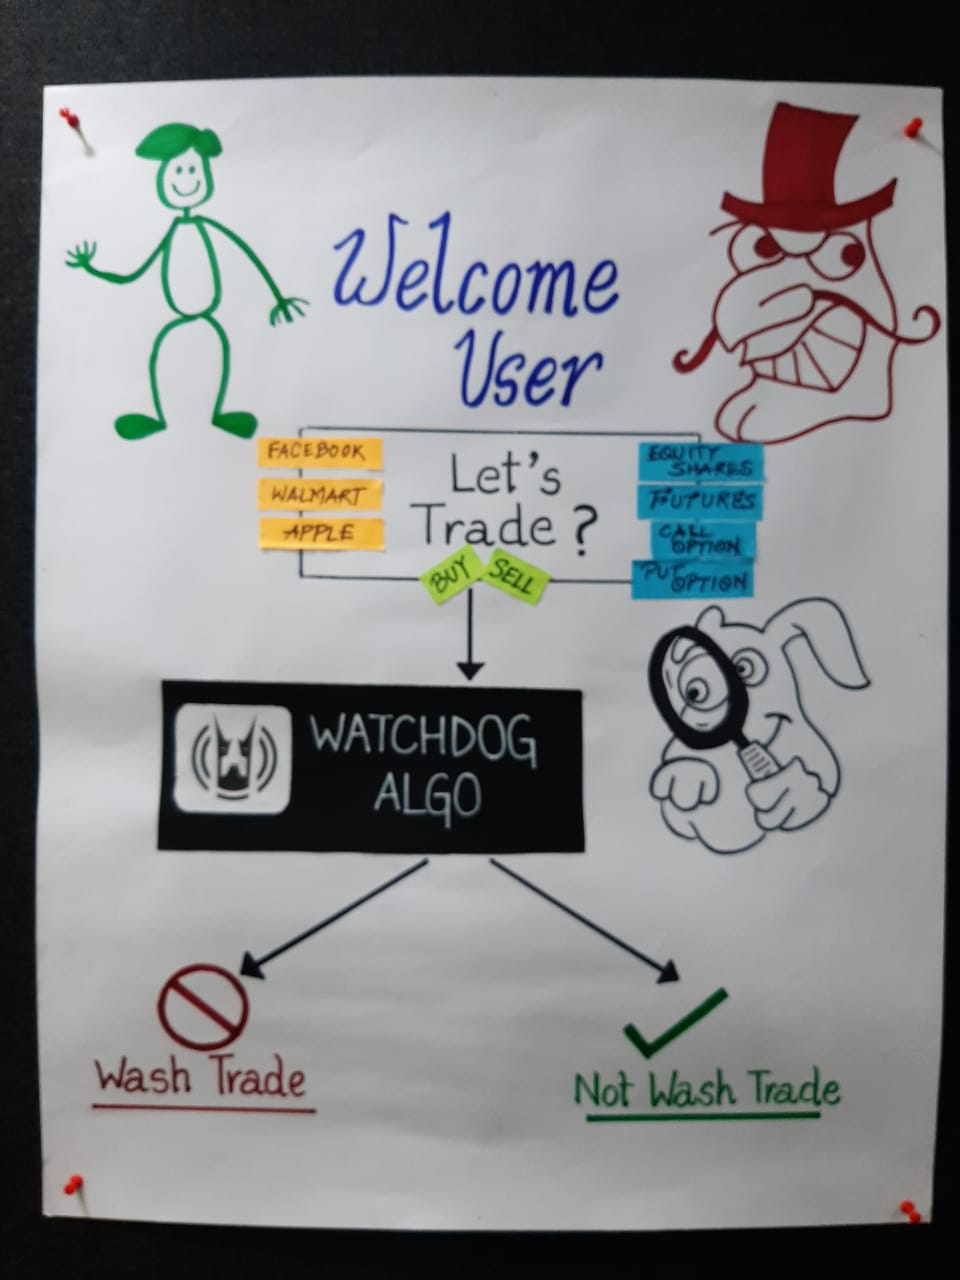 Welcome
User
FACEBOOK
WALMART
APPLE
Let's
Trade?
EQUITY
SHARES
FUTURES
CALL
OPTION
PUT
OPTION
BUY
SELL
WATCHDOG
ALGO
Wash Trade
Not Wash Trade